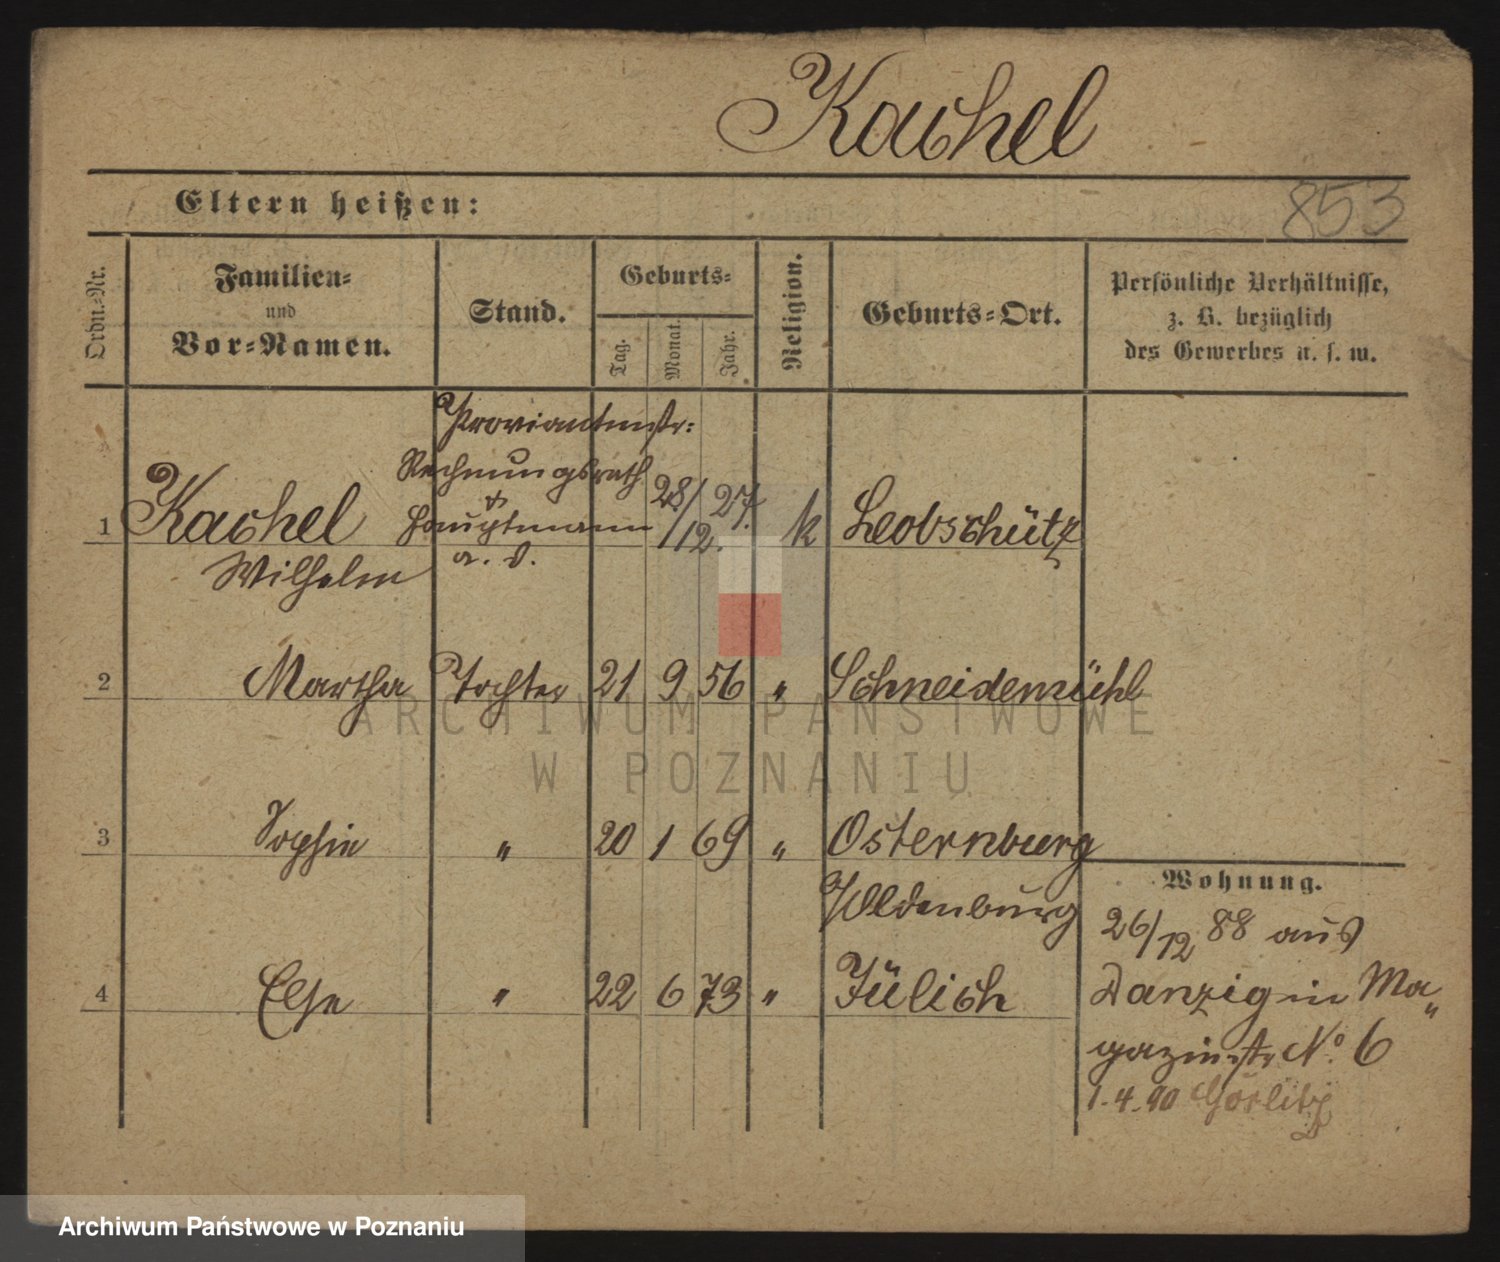 Kachel
853
Eltern heißen:
Ordn.-Nr.
Familien-
und
Vor-Namen.
Stand.
Geburts-
Tag.
Monat.
Jahr.
Religion.
Geburts-Ort.
Persönliche Verhältnisse,
z. B. bezüglich
des Gewerbes u. s. w.
Proviantmstr:
Rechnungsrath
1 Kachel Hauptmann 28/12. 27. k Leobschütz
Wilhelm a. D.
2 Martha Tochter 21 9 56 " Schneidemühl
3 Sophie " 20 1 69 " Osternburg
Oldenburg
4 Else " 22 6 73 " Jülich
Wohnung.
26/12 88 aus
Danzig in Ma"
gazinstr No. 6
1.4.90 Görlitz
ARCHIWUM PAŃSTWOWE
W POZNANIU
Archiwum Państwowe w Poznaniu